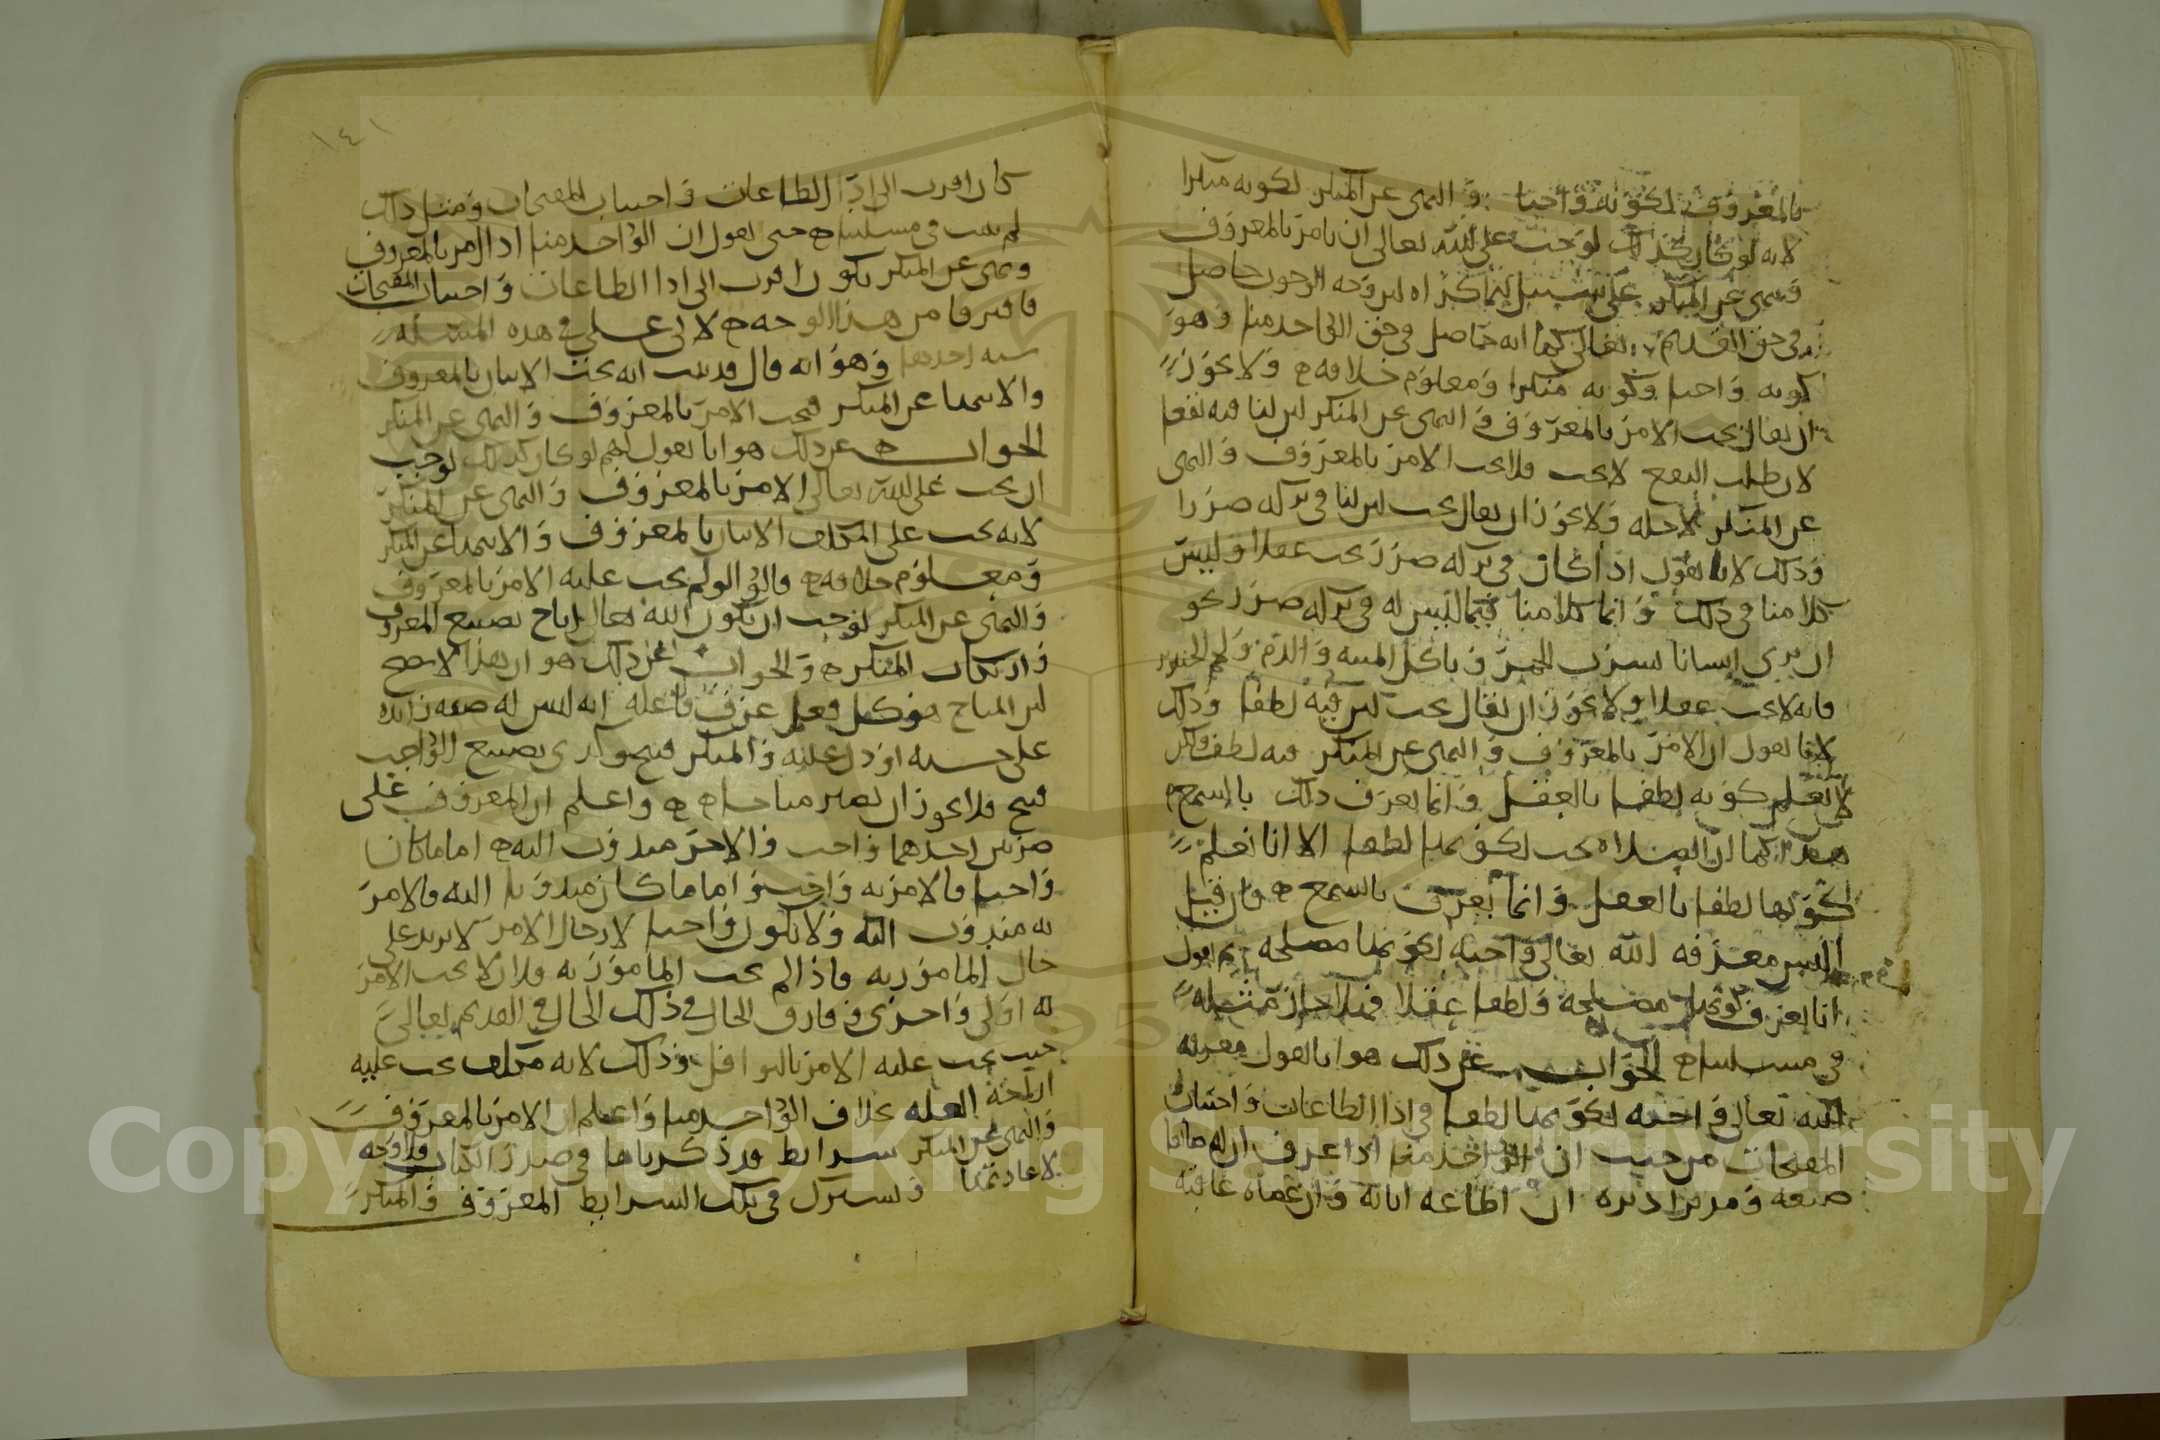 بالمعروف لكونه واجبا والنهي عن المنكر لكونه منكرا
لانه لو كان كذلك لوجب على الله تعالى ان يامر بالمعروف
وينهى عن المنكر على سبيل الاكراه لان وجه الوجوب حاصل
في حق القديم تعالى كما انه حاصل في حق الواحد منا وهو
كونه واجبا وكونه منكرا ومعلوم خلافه ولا يجوز
ان يقال يجب الامر بالمعروف والنهي عن المنكر لان لنا فيه نفعا
لان طلب النفع لا يجب فلا يجب الامر بالمعروف والنهي
عن المنكر لاجله ولا يجوز ان يقال يجب لان لنا في تركه ضررا
وذلك لانا نقول اذا كان في تركه ضرر يجب عقلا وليس
كلامنا في ذلك وانما كلامنا فيما ليس له في تركه ضرر نحو
ان يرى انسانا يشرب الخمر وياكل الميتة والدم ولحم الخنزير
فانه لا يجب عقلا ولا يجوز ان يقال يجب لان فيه لطفا وذلك
لانا نقول ان الامر بالمعروف والنهي عن المنكر فيه لطف ولكن
لا نعلم كونه لطفا بالعقل وانما نعرف ذلك بالسمع
هذا كما ان الصلاة يجب لكونها لطفا الا انا نعلم
كونها لطفا بالعقل وانما نعرف بالسمع فان قيل
اليس معرفة الله تعالى واجبة لكونها مصلحة ثم نقول
انا نعرف كونها مصلحة ولطفا عقلا فهلا جاز مثله
في مسلتنا الجواب عن ذلك هو انا نقول معرفة
الله تعالى واجبة لكونها لطفا في اداء الطاعات واجتناب
المقبحات من حيث ان الواحد منا اذا عرف ان له صانعا
صنعه ومدبرا دبره ان اطاعه اثابه وان عصاه عاقبه
١٤١
كان اقرب الى اداء الطاعات واجتناب المقبحات ومثل ذلك
لم يثبت في مسلتنا حتى نقول ان الواحد منا اذا امر بالمعروف
ونهى عن المنكر يكون اقرب الى اداء الطاعات واجتناب المقبحات
فافترقا من هذا الوجه لابي علي في هذه المسلة
شبه احدها وهو انه قال قد ثبت انه يجب الاتيان بالمعروف
والانتهاء عن المنكر فيجب الامر بالمعروف والنهي عن المنكر
الجواب عن ذلك هو انا نقول لهم لو كان كذلك لوجب
ان يجب على الله تعالى الامر بالمعروف والنهي عن المنكر
لانه يجب على المكلف الاتيان بالمعروف والانتهاء عن المنكر
ومعلوم خلافه قالوا لو لم يجب عليه الامر بالمعروف
والنهي عن المنكر لوجب ان يكون الله تعالى اباح تضييع المعروف
وارتكاب المنكر والجواب عن ذلك هو ان هذا لا يصح
لان المباح هو كل فعل عرف فاعله انه ليس له صفة زائدة
على حسنه او دل عليه والمنكر قبيح وكذى تضييع الواجب
قبيح فلا يجوز ان يصير مباحا واعلم ان المعروف على
ضربين احدهما واجب والاخر مندوب اليه اما ما كان
واجبا فالامر به واجب واما ما كان مندوبا اليه فالامر
به مندوب اليه ولا يكون واجبا لان حال الامر لا يزيد على
حال المامور به فاذا لم يجب المامور به فلان لا يجب الامر
له اولى واحرى وفارق الحال في ذلك الحال في القديم تعالى
حيث يجب عليه الامر بالنوافل وذلك لانه مكلف يجب عليه
ازاحة العلة بخلاف الواحد منا واعلم ان الامر بالمعروف
والنهي عن المنكر شرايط قد ذكرناها في صدر الكتاب فلا وجه
لاعادتها ويشترك في تلك الشرايط المعروف والمنكر